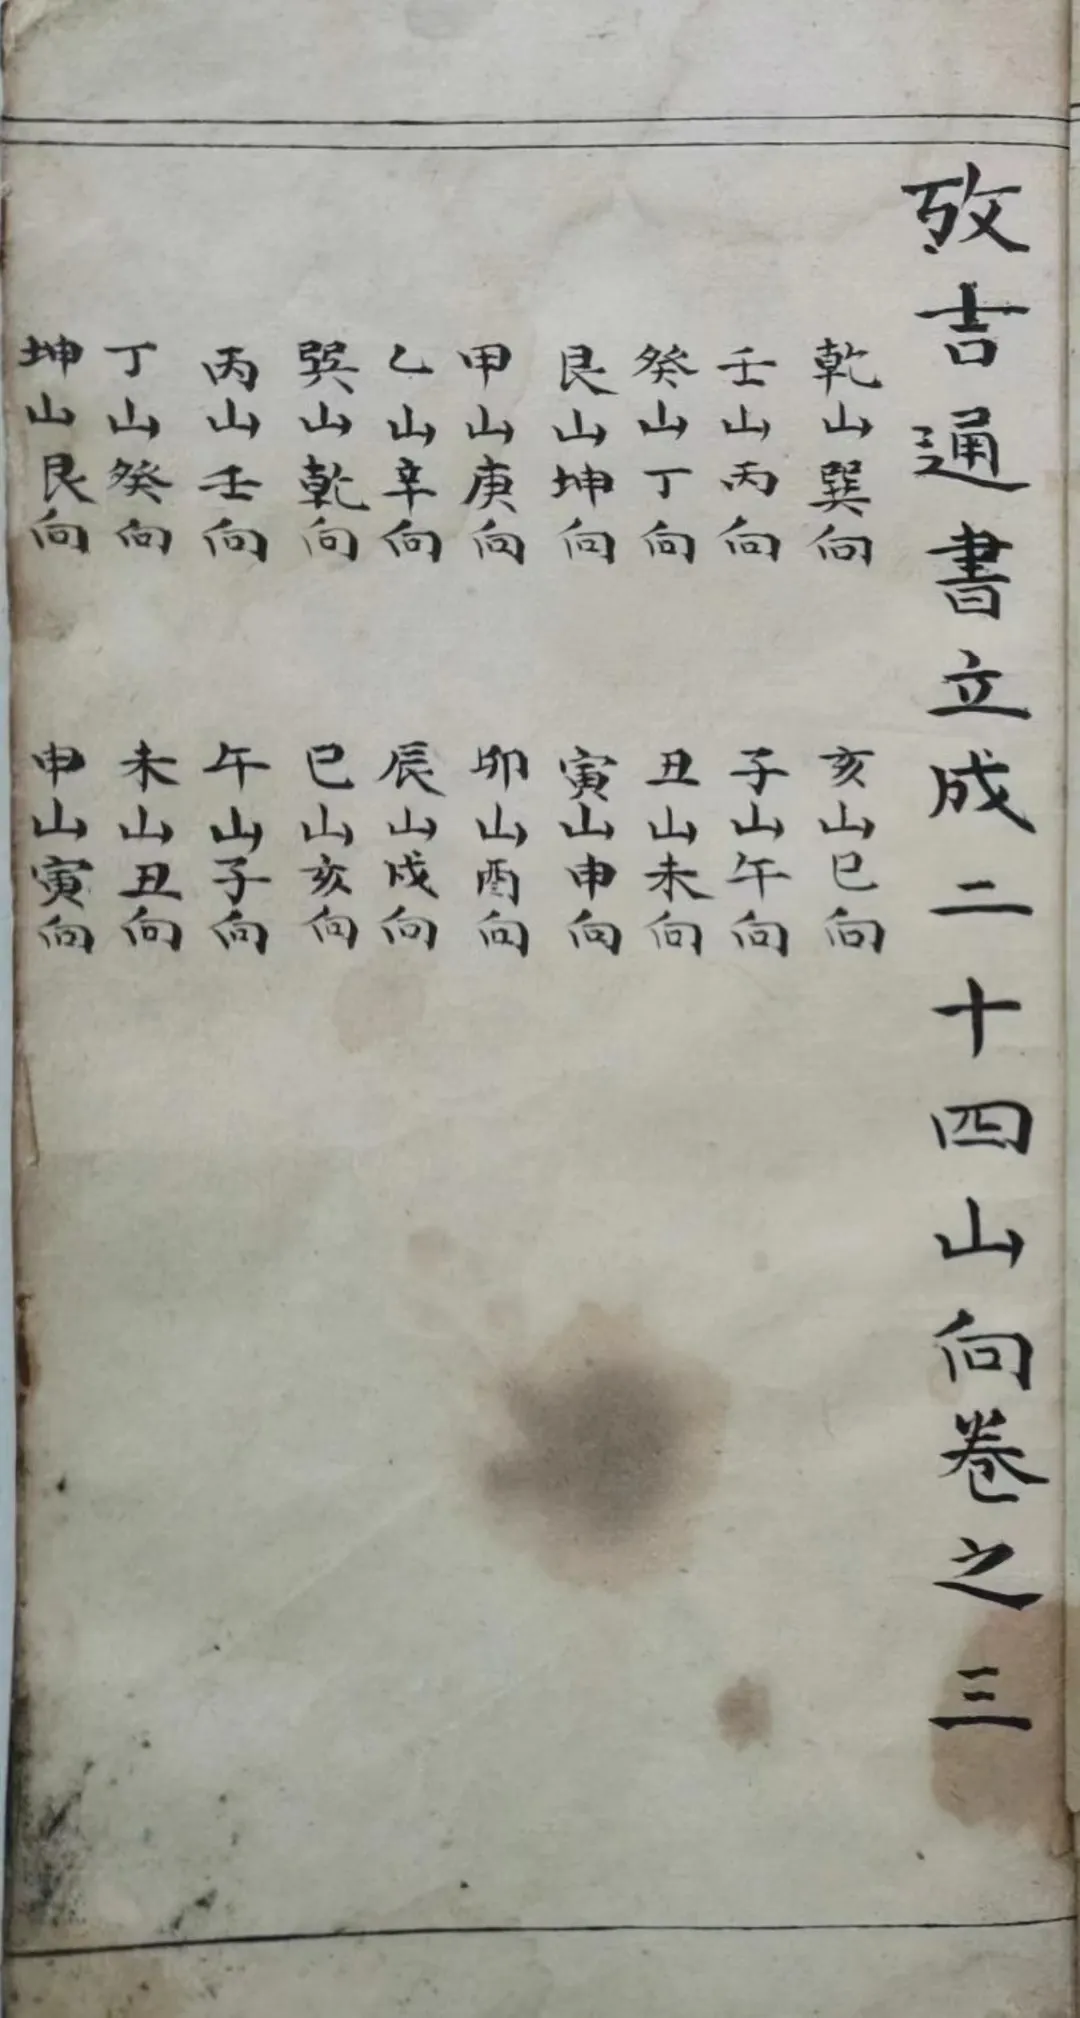 攷吉通書立成二十四山向卷之三
乾山巽向 亥山巳向
壬山丙向 子山午向
癸山丁向 丑山未向
艮山坤向 寅山申向
甲山庚向 卯山酉向
乙山辛向 辰山戌向
巽山乾向 巳山亥向
丙山壬向 午山子向
丁山癸向 未山丑向
坤山艮向 申山寅向